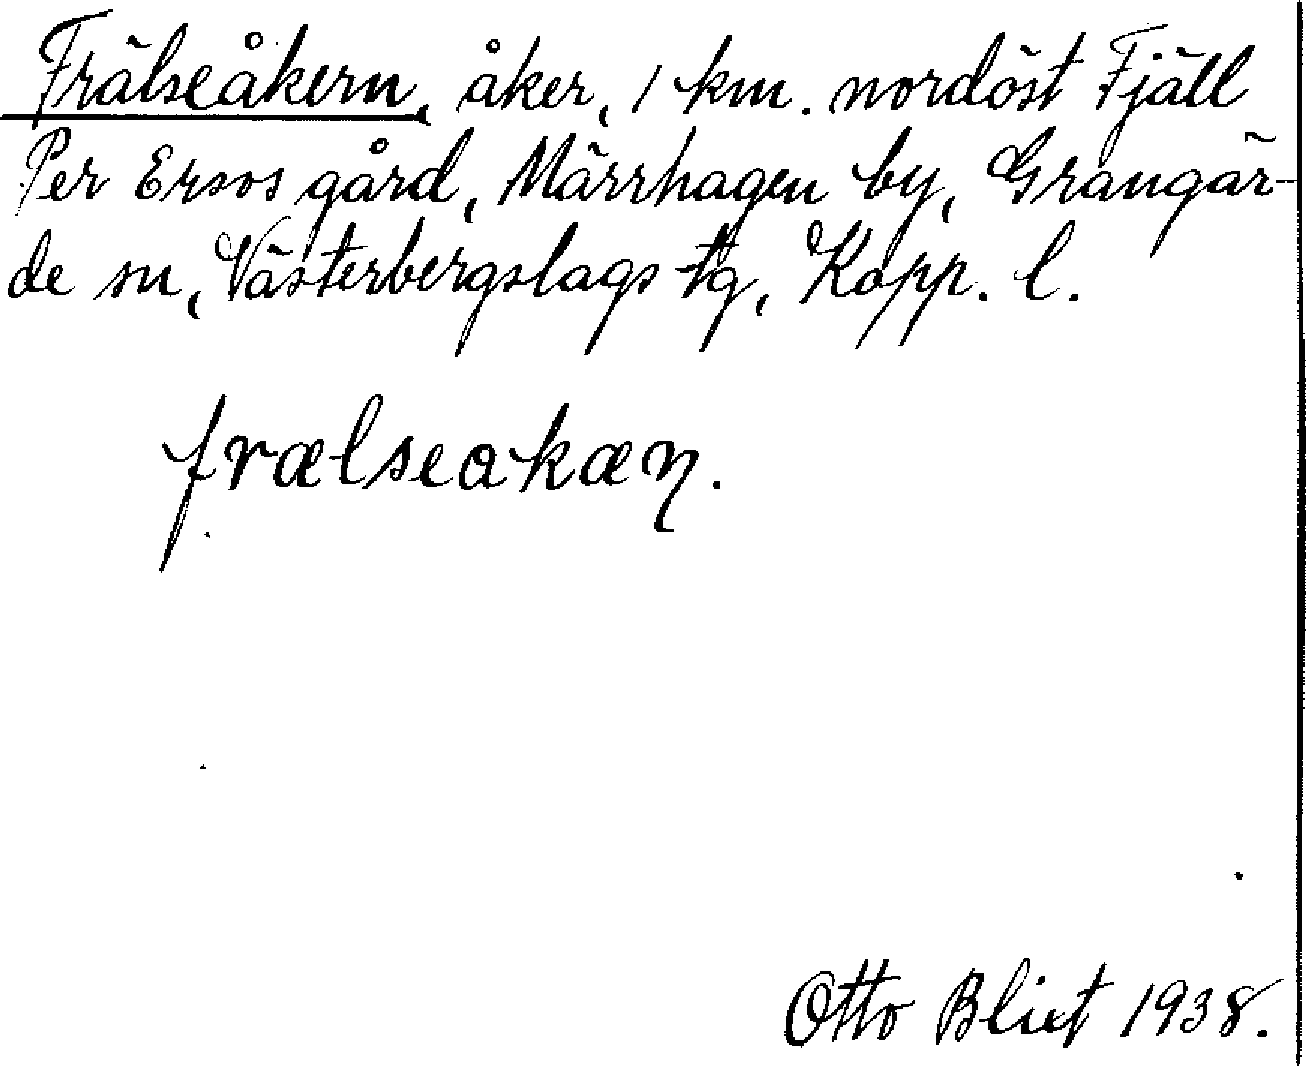 Frälseåkern, åker, 1 km. nordöst Fjäll
Per Ersos gård, Märrhagen by, Grangär-
de sn, Västerbergslags tg, Kopp. l.
frælseakæꞃ.
Otto Blixt 1938.